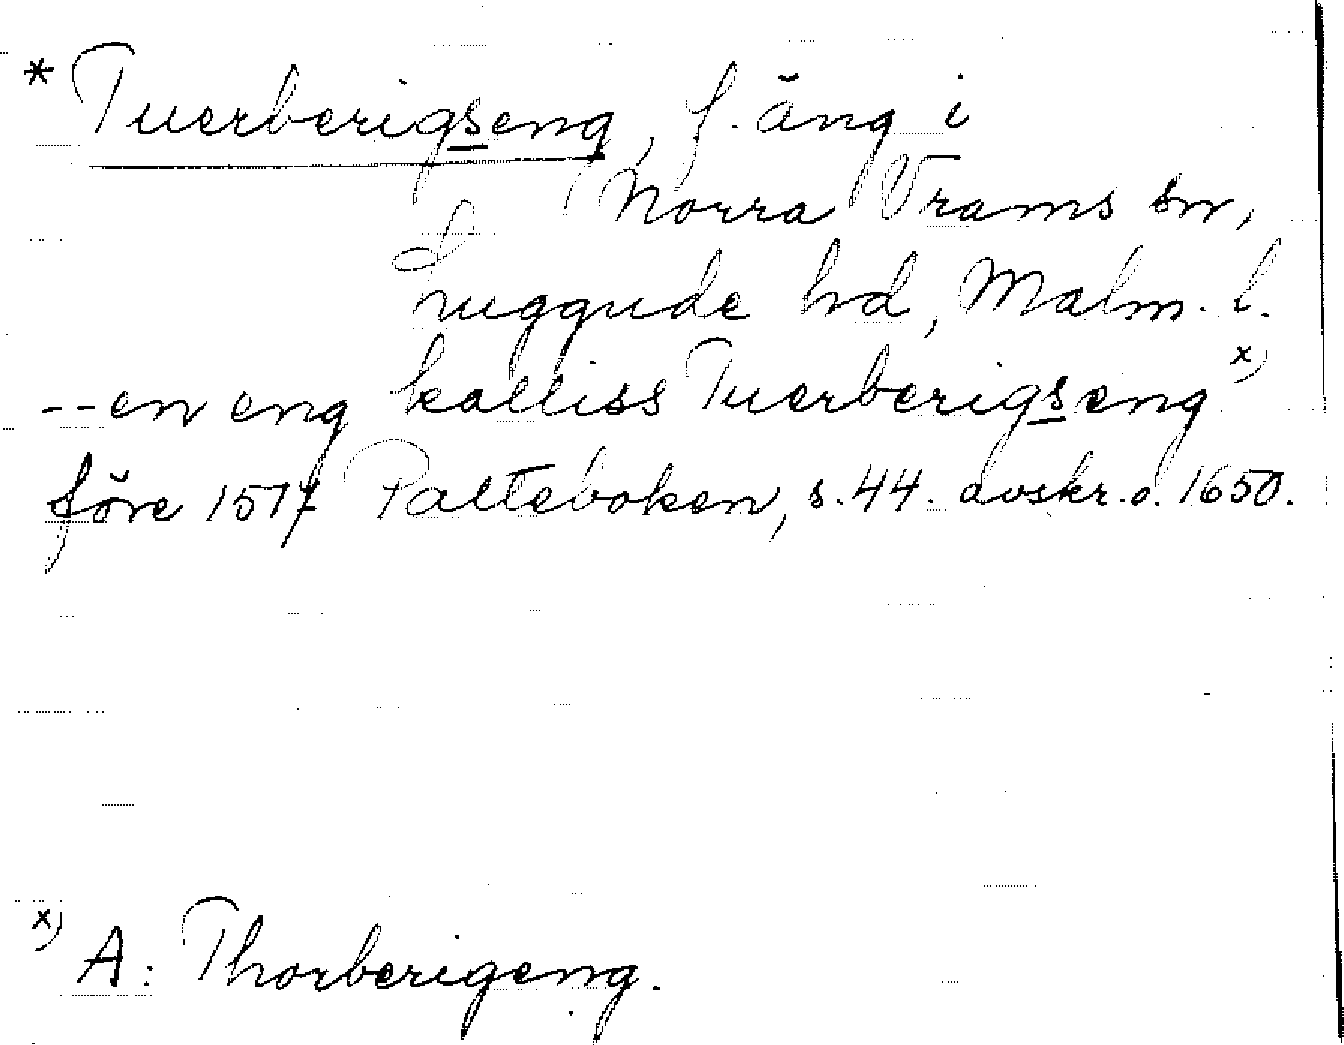 * Tuerberigseng, f. äng i
Norra Vrams sn,
Luggude hd, Malm. l.
--en eng kalliss Tuerberigseng x)
före 1517 Palteboken, s. 44. avskr. o. 1650.
x) A: Thorberigeng.